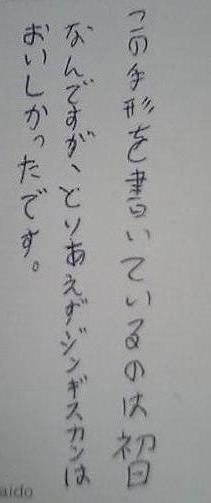 この手形を書いているのは初日
なんですが、とりあえずジンギスカンは
おいしかったです。
aido